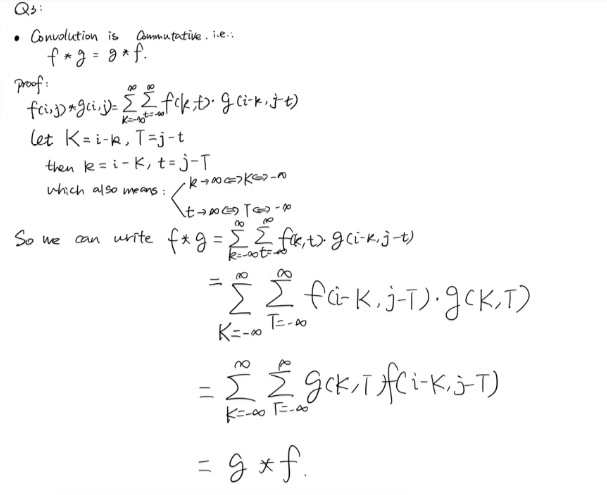 Q3:
• Convolution is Commutative. i.e.:
f * g = g * f.
proof:
f(i,j)*g(i,j)= ∑_{k=-∞}^{∞} ∑_{t=-∞}^{∞} f(k,t)· g(i-k,j-t)
let K=i-k, T=j-t
then k=i-K, t=j-T
which also means: k→∞⇔K⇔-∞
t→∞⇔T⇔-∞
So we can write f*g = ∑_{k=-∞}^{∞} ∑_{t=-∞}^{∞} f(k,t)· g(i-k,j-t)
= ∑_{K=-∞}^{∞} ∑_{T=-∞}^{∞} f(i-K,j-T)·g(K,T)
= ∑_{K=-∞}^{∞} ∑_{T=-∞}^{∞} g(K,T)f(i-K,j-T)
= g * f.